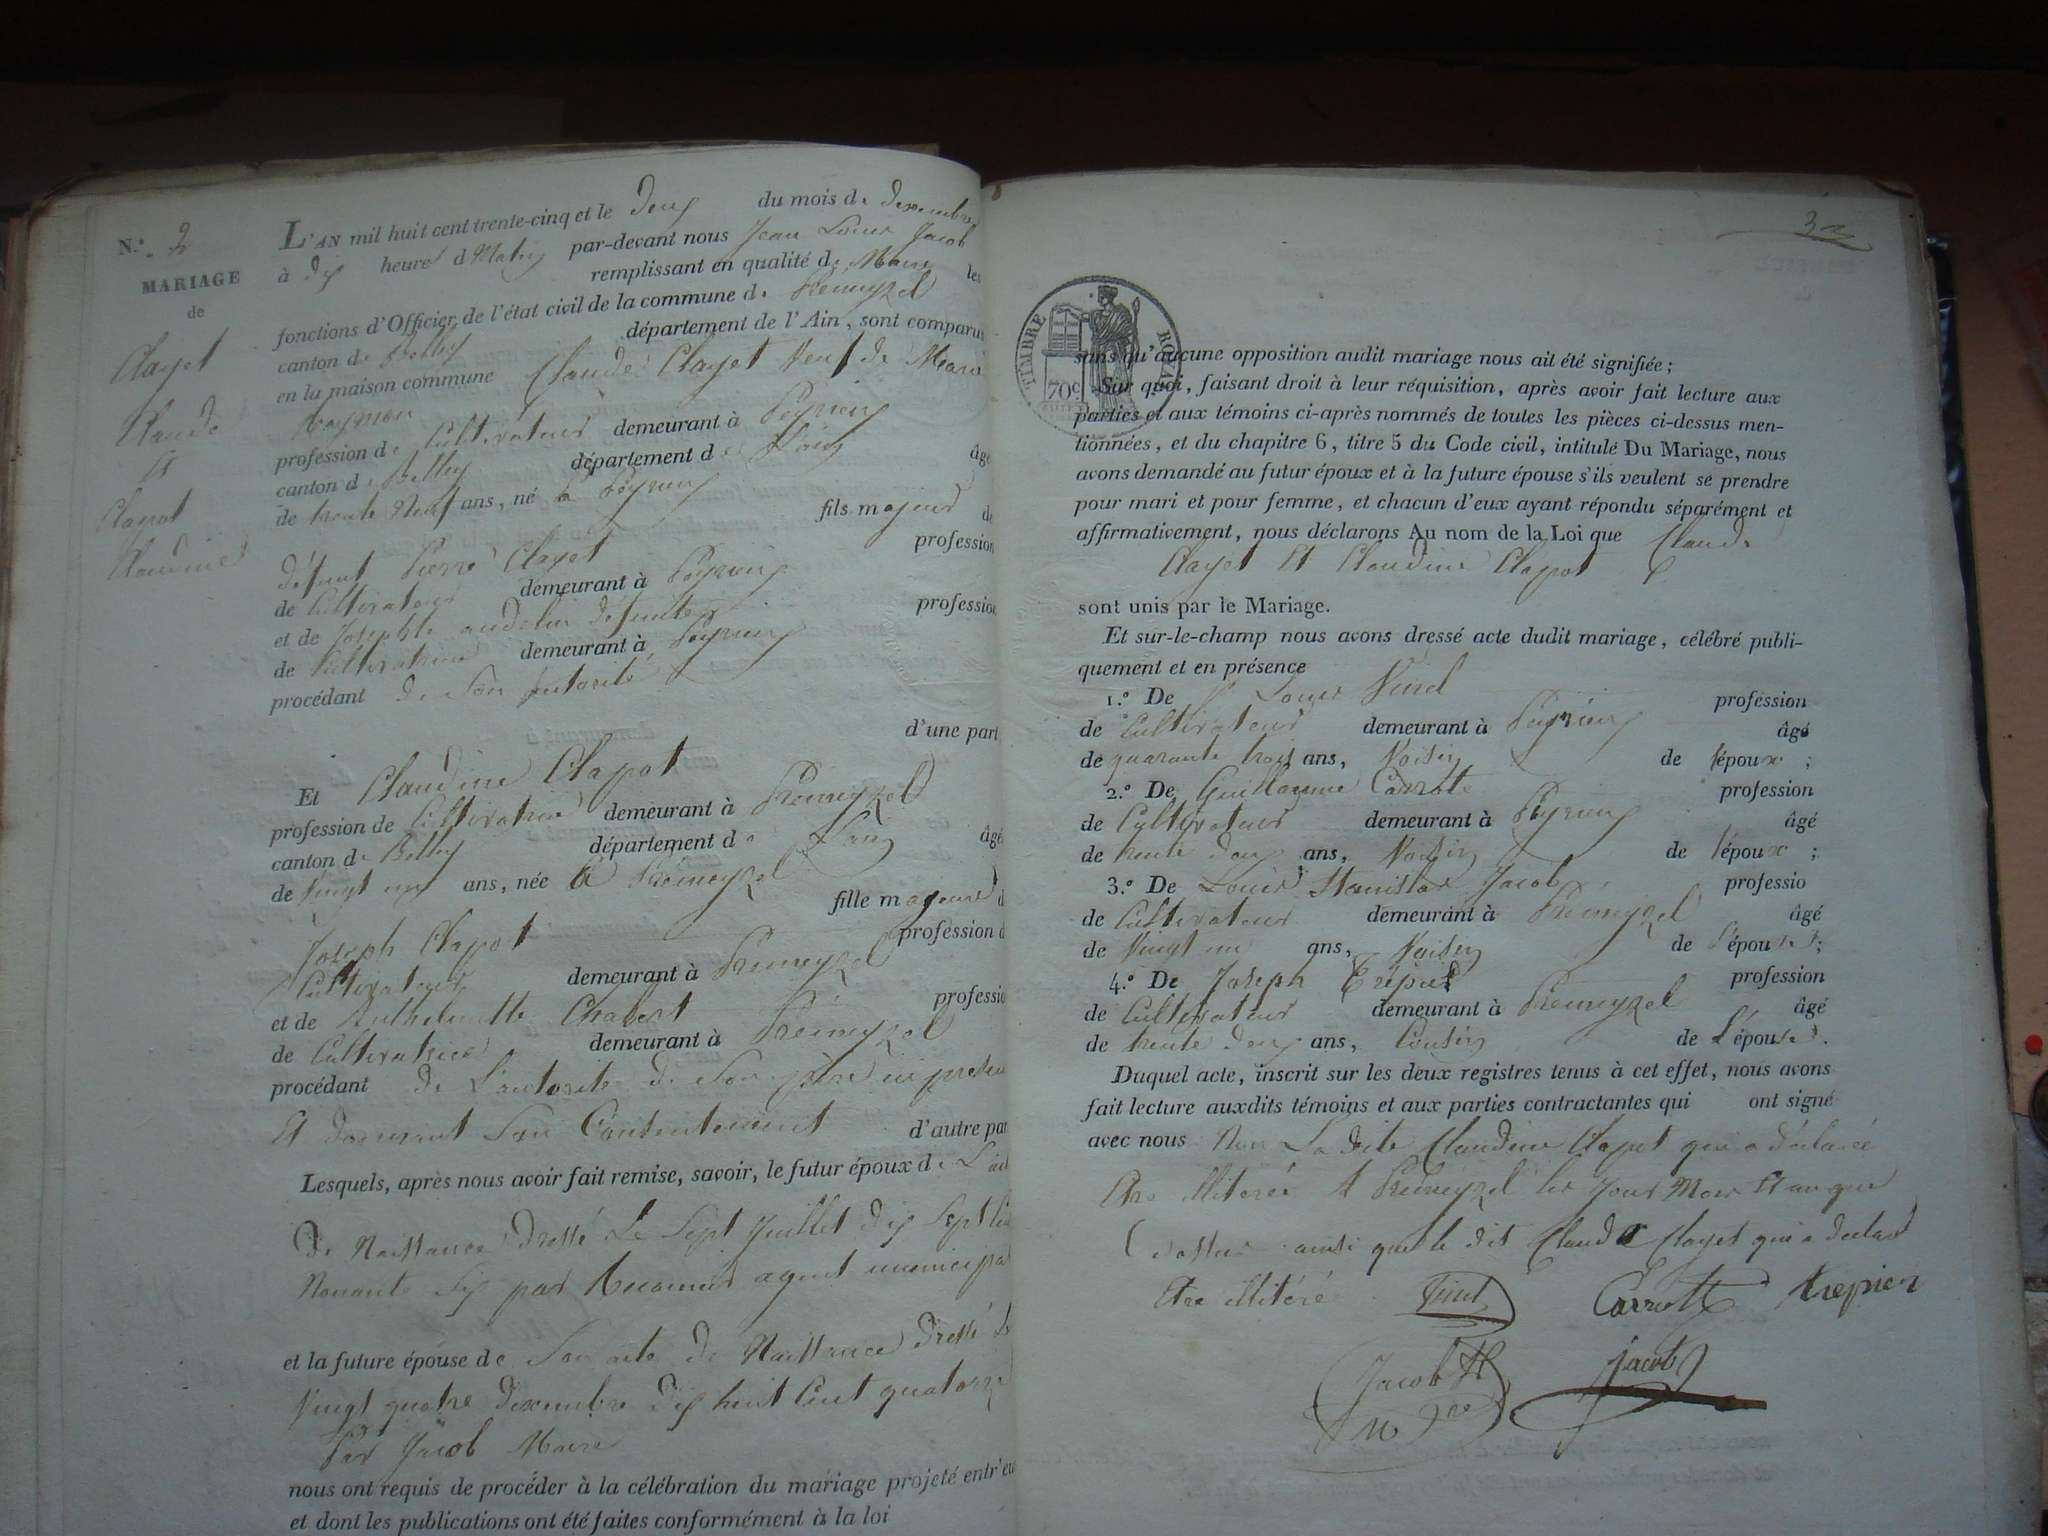 N.º 2
MARIAGE
de
Clayet
Claude
Et
Clapot
Claudine
L'AN mil huit cent trente-cinq et le deux du mois de dexembre
à dix heures d Matin par-devant nous Jean Louis Jacob
remplissant en qualité de Maire les
fonctions d'Officier de l'état civil de la commune de Prémeyzel
canton de Belley département de l'Ain, sont comparus
en la maison commune Claude Clayet Veuf de Marie
profession de Cultivateur demeurant à Peyrieu
canton de Belley département de L'ain âgé
de trente Neuf ans, né à Peyrieu
fils majeur de
défunt Pierre Clayet profession
de Cultivateur demeurant à Peyrieu
et de Josephte andelin defunte profession
de Cultivatrice demeurant à Peyrieu
procédant de Son autorité
d'une part
Et Claudine Clapot
profession de Cultivatrice demeurant à Prémeyzel
canton de Belley département de L'ain âgé
de Vingt un ans, née à Prémeyzel
fille majeure d
Joseph Clapot profession d
Cultivateur demeurant à Prémeyzel
et de Anthelmette Chabert professio
de Cultivatrice demeurant à Prémeyzel
procédant de L'autorité de Son père ici présent
Et donnant Son Consentement d'autre par
Lesquels, après nous avoir fait remise, savoir, le futur époux de L'act
De Naissance Dressé Le Sept Juillet dix Sept Cent
Nonante Six par agent municipal
et la future épouse de Son acte de Naissance Dressé Le
Vingt quatre dexembre dix huit Cent quatorze
Par Jacob Maire
nous ont requis de procéder à la célébration du mariage projeté entr'eux
et dont les publications ont été faites conformément à la loi
32
TIMBRE ROYAL
70c
sans qu'aucune opposition audit mariage nous ait été signifiée;
Sur quoi, faisant droit à leur réquisition, après avoir fait lecture aux
parties et aux témoins ci-après nommés de toutes les pièces ci-dessus men-
tionnées, et du chapitre 6, titre 5 du Code civil, intitulé Du Mariage, nous
avons demandé au futur époux et à la future épouse s'ils veulent se prendre
pour mari et pour femme, et chacun d'eux ayant répondu séparément et
affirmativement, nous déclarons Au nom de la Loi que Claude
Clayet Et Claudine Clapot
sont unis par le Mariage.
Et sur-le-champ nous avons dressé acte dudit mariage, célébré publi-
quement et en présence
1.º De Louis Vinel profession
de Cultivateur demeurant à Peyrieu âgé
de quarante trois ans, Voisin de l'époux ;
2.º De Guillaume Carrote profession
de Cultivateur demeurant à Peyrieu âgé
de trente deux ans, Voisin de l'époux ;
3.º De Louis Stanislas Jacob professio
de Cultivateur demeurant à Prémeyzel âgé
de Vingt un ans, Voisin de l'épouse ;
4.º De Joseph Trépier profession
de Cultivateur demeurant à Prémeyzel âgé
de trente deux ans, Cousin de L'épouse .
Duquel acte, inscrit sur les deux registres tenus à cet effet, nous avons
fait lecture auxdits témoins et aux parties contractantes qui ont signé
avec nous Non La dite Claudine Clapot qui a déclaré
Etre illitérée A Prémeyzel les Jour Mois Et an que
dessus ainsi que le dit Claude Clayet qui a déclaré
Etre illitéré Vinel Carrott trepier
Jacob St Jacob